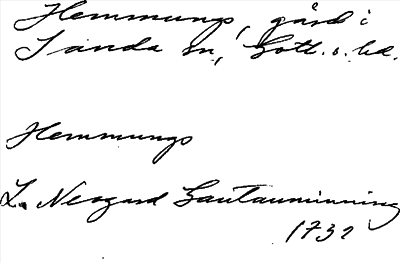 Hemmungs, gård i
Sanda sn, Gotl. o. bd.
Hemmungs
L. Nergard Gautauminning
1732